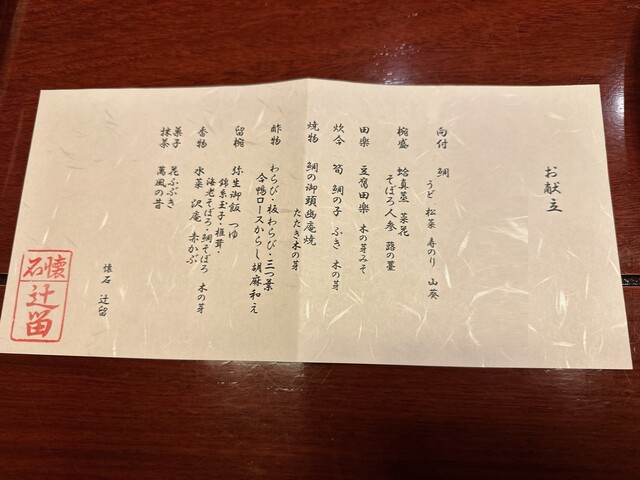 お献立
向付 鯛
うど 松菜 寿のり 山葵
椀盛 蛤真茎 菜花
そぼろ人参 蕗の薹
田楽 豆腐田楽 木の芽みそ
炊合 筍 鯛の子 ふき 木の芽
焼物 鯛の御頭幽庵焼
たたき木の芽
酢物 わらび・板わらび・三つ葉
合鴨ロースからし胡麻和え
留椀 弥生御飯 つゆ
錦糸玉子・椎茸・
海老そぼろ・鯛そぼろ 木の芽
香物 水菜 沢庵 赤かぶ
菓子 花ふぶき
抹茶 萬風の昔
懐石 辻留
懐石
辻留